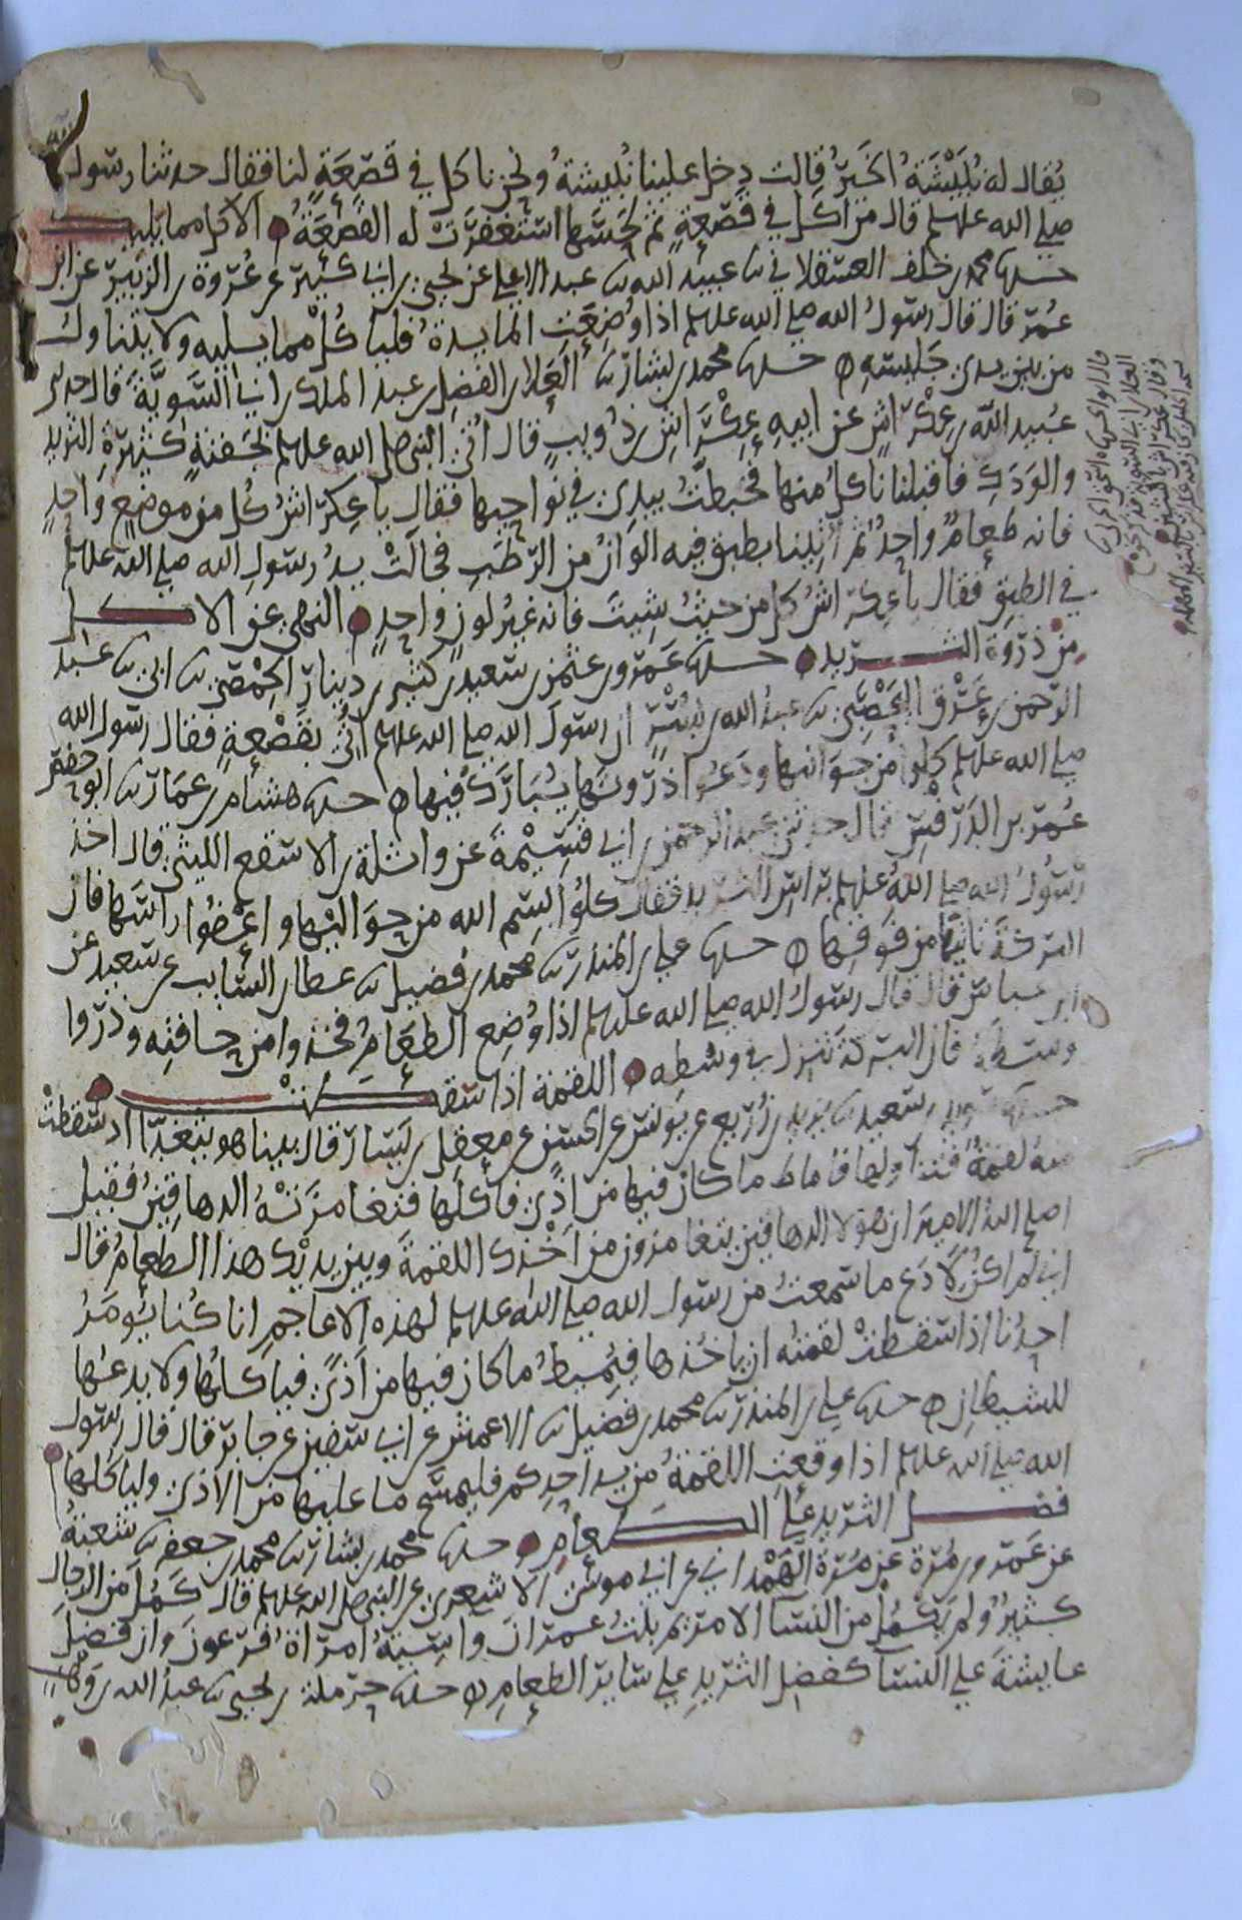 يقال له نُبَيْشَةُ الخَيرُ قالت دخل علينا نُبيشةُ ونحن ناكل في قَصْعَةٍ لنا فقال حدثنا رسول
صلى الله عليه وسلم قال من اكل في قصعةٍ ثم لحسها استغفرت له القصعةُ الاكل مما يليك
حدثنا محمد بن خلف العسقلاني ثنا عبيد الله ثنا عبد الاعلى عن يحيى بن ابي كثير عن عروة بن الزبير عن ابن
عُمر قال قال رسول الله صلى الله عليه وسلم اذا وُضِعَتِ المايدةُ فلياكُلْ مما يليه ولا يتناول
من بين يدي جَليسهِ حدثنا محمد بن بشار ثنا العلا بن الفضل بن عبد الملك بن ابي السَّوِيَّةِ قال حدثني
عُبيد الله بن عِكْراشٍ عن ابيهِ عِكْراشِ بن ذُويبٍ قال اُتي النبي صلى الله عليه وسلم بجَفنةٍ كثيرةِ الثريد
والوَدَكِ فاقبلنا ناكلُ منها فخبطتُ بيدي في نواحيها فقال يا عِكراشُ كُل من موضعٍ واحدٍ
فانه طعامٌ واحدٌ ثم اُتينا بطبقٍ فيه الوانٌ من الرُّطَبِ فجالتْ يدُ رسولِ الله صلى الله عليه وسلم
في الطبقِ فقال يا عِكراشُ كل من حيثُ شِيتَ فانه غيرُ لونٍ واحدٍ النهي عن الاكل
من ذروة الثريد حدثنا عَمرو بن عثمن بن سَعيد بن كثير بن دينار الحِمْصي ثنا ابي ثنا محمد بن عبد
الرحمن بن عِرْقٍ اليَحْصُبي ثنا عبدُ الله بن بُسْرٍ ان رسولَ الله صلى الله عليه وسلم اُتي بقَصْعةٍ فقال رسول الله
صلى الله عليه وسلم كلوا من جوانبها ودَعُوا ذروتها يُبَارَكْ فيها حدثنا هشام بن عمار ثنا ابو حفص
عُمر بن الدَّرَفْسِ قال حدثني عبد الرحمن بن ابي قَسِيْمةَ عن واثلة بن الاسقع الليثي قال اخذ
رسُولُ الله صلى اللهُ عليه وسلم براسِ الثريد فقال كُلُوا بسم الله من حَوَاليْها واعْفُوا راسَها فان
البركة تاتيها من فوقها حدثنا علي بن المنذر ثنا محمد بن فُضيل ثنا عطا بن السايب عن سَعيد عن
ابن عباس قال قال رسولُ الله صلى الله عليه وسلم اذا وُضِع الطعامُ فخذوا من حافتِه وذروا
وسَطَهُ فان البركةَ تنزل في وسَطِه اللقمة اذا سقطت
حدثنا سُويد بن سَعيد ثنا يزيد بن زُريع عن يونس عن الحسن عن معقل بن يَسَار قال بينا هو يتغدّا اذ سَقطتْ
منه لقمةٌ فتناولها فاماط ما كان فيها من اذًى فاكلَها فتغامزَتْ به الدهاقينُ فقيل
اصلح اللهُ الاميرَ ان هولا الدهاقينَ يتغامزون من اَخْذِك اللقمةَ وبين يديْك هذا الطعامُ قال
اني لم اكن لاَدَع ما سمعتُ من رسول الله صلى الله عليه وسلم لهذه الاعاجم انا كُنا يُومَرُ
احدُنا اذا سَقطتْ لقمتُه ان ياخُذها فيُميطُ ما كان فيها من اَذًى فياكلُها ولا يدعُها
للشيطانِ حدثنا علي بن المنذر ثنا محمد بن فضيل ثنا الاعمش عن ابي سفين عن جابر قال قال رسول
الله صلى الله عليه وسلم اذا وقعتِ اللقمةُ من يد احدِكم فليمسَح ما عليها من الاذى ولياكلها
فضل الثريد على الطعامِ حدثنا محمد بن بشار ثنا محمد بن جعفر ثنا شعبةُ
عن عَمرو بن مُرة عن مُرة الهَمْداني عن ابي موسَى الاشعري عن النبي صلى الله عليه وسلم قال كَمُلَ من الرجال
كثيرٌ ولم يَكْمُلْ من النسا الا مريم بنتُ عمرانَ واسيةُ امراةُ فرعونَ وان فضلَ
عايشةَ على النسآ كفضل الثريدِ على ساير الطعامِ حدثنا حرملة بن يحيى ثنا عبد الله بن وهب